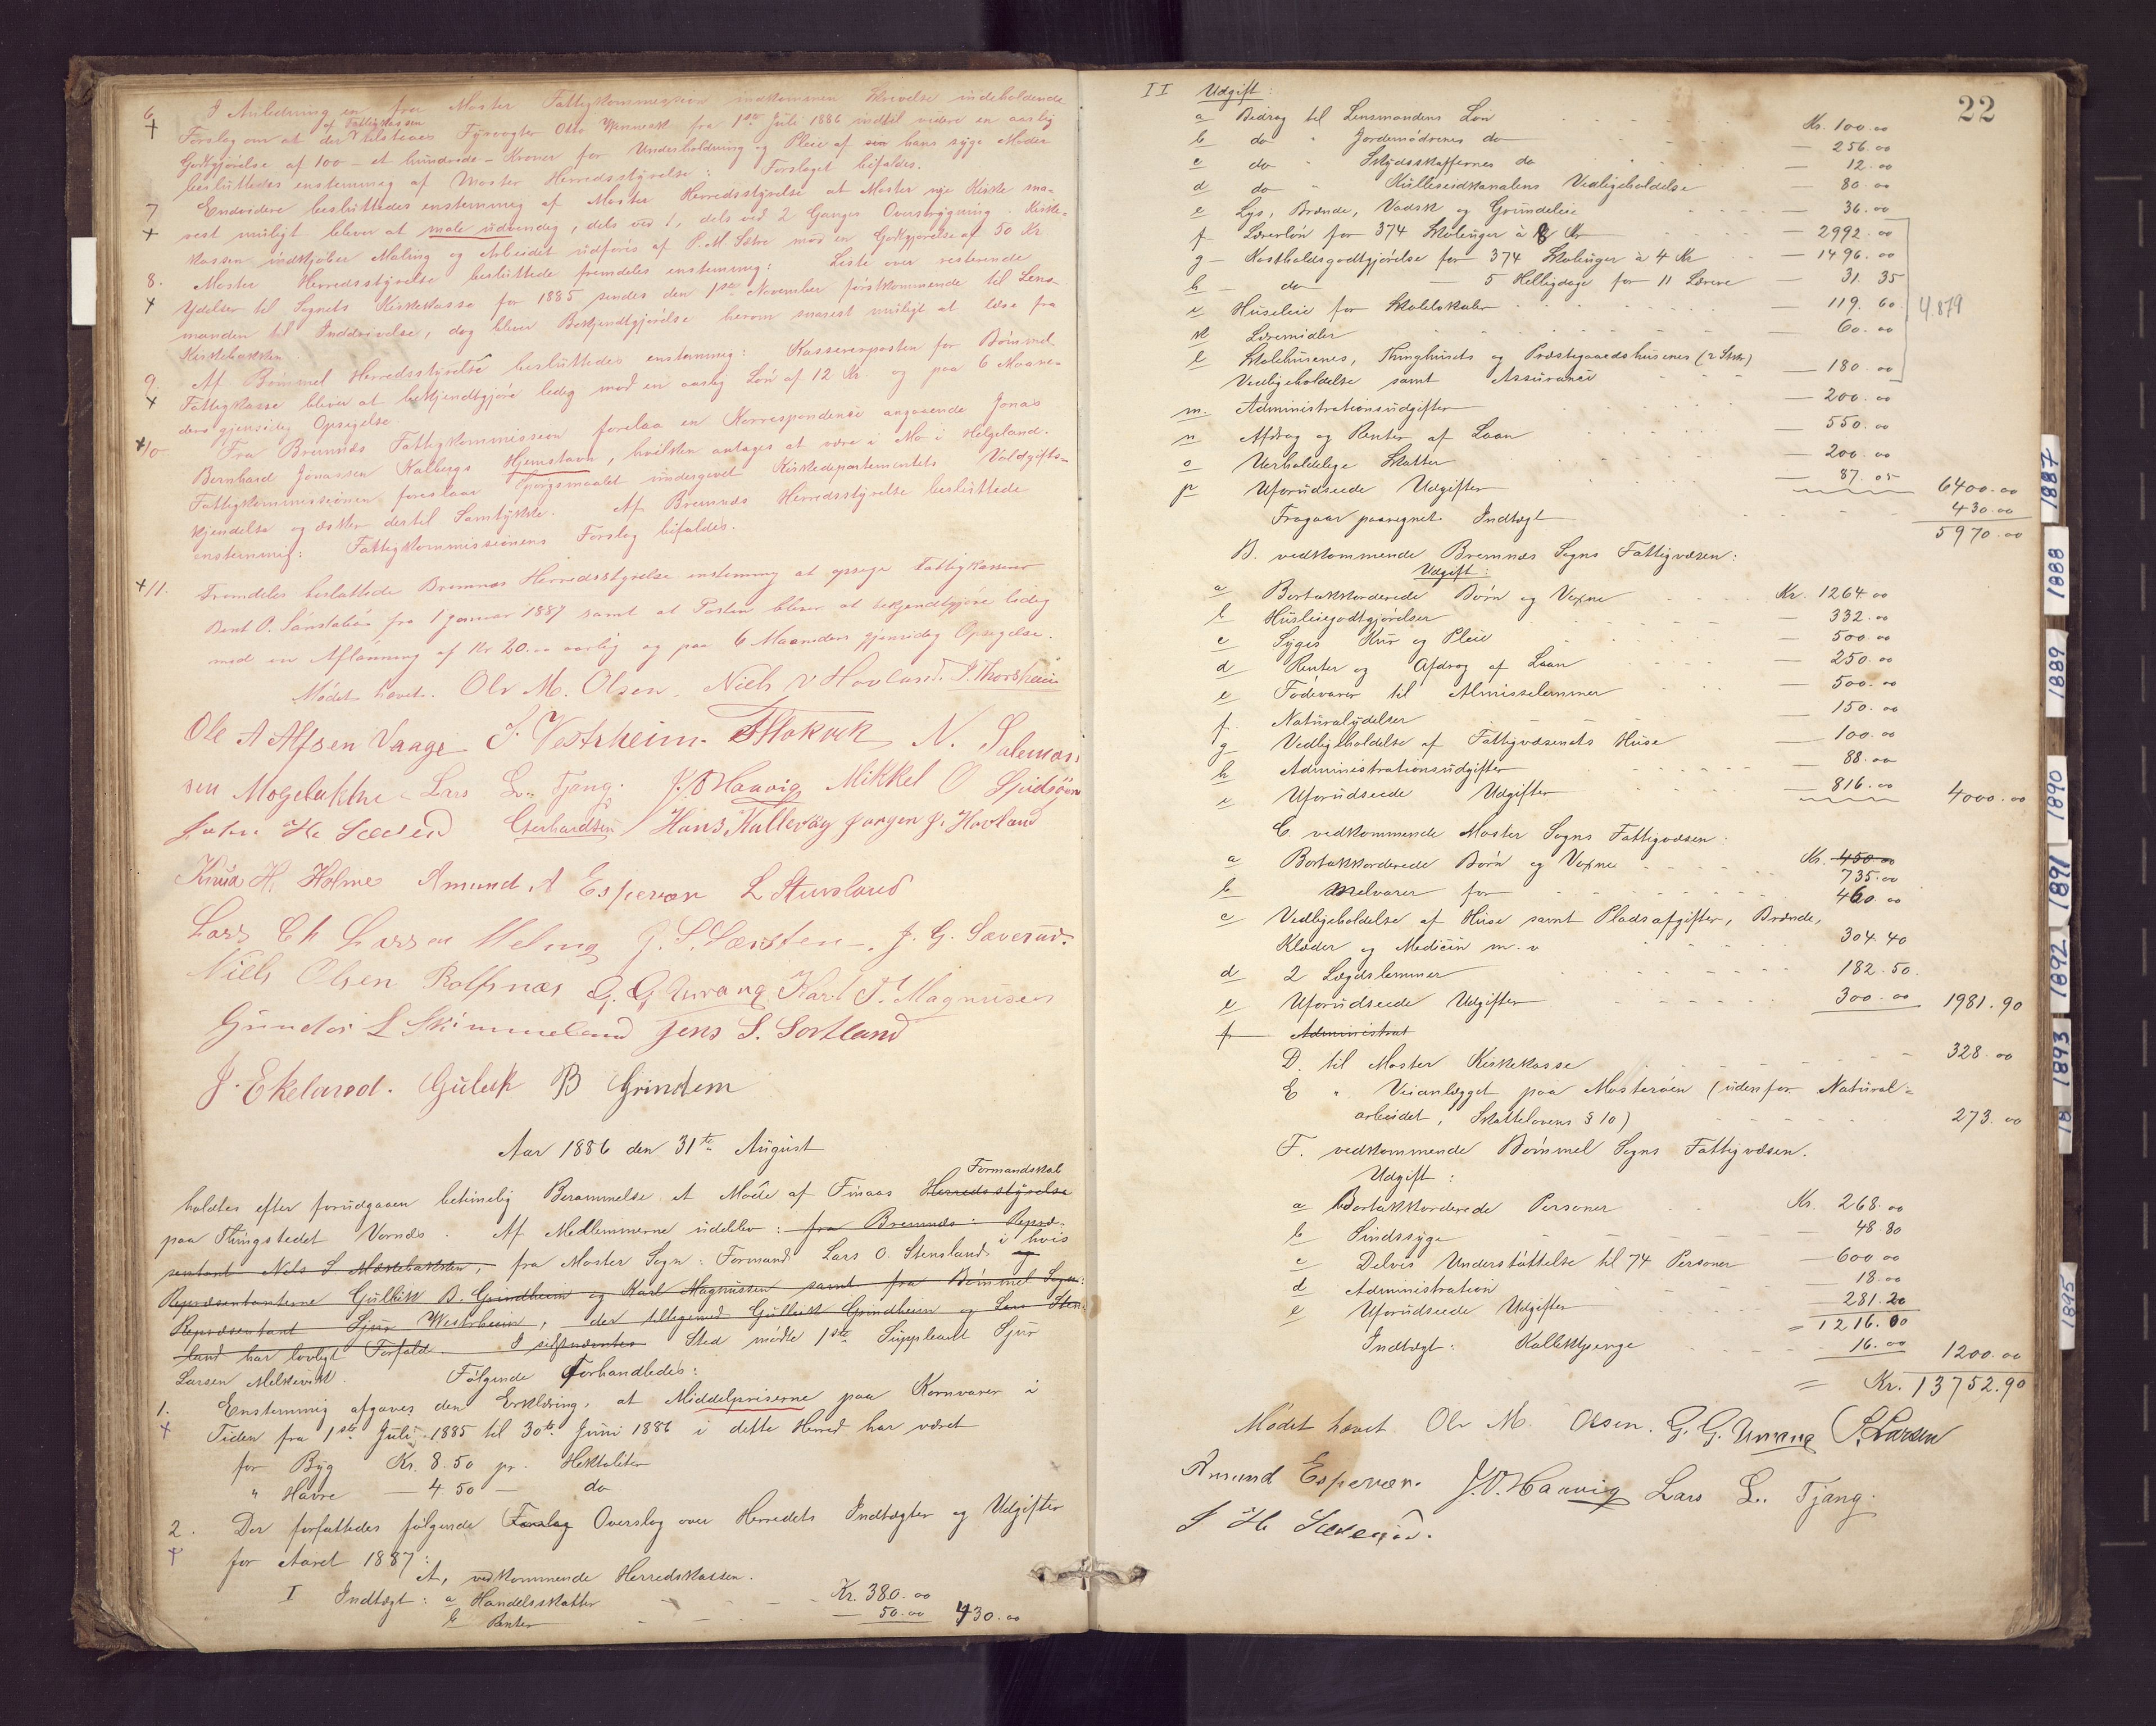 6. I Anledning en fra Moster Fattigkommission indkommen Skrivelse indeholdende
+ Forslag om at der af Fattigkassen tilstaaes Fyrvogter Otto Vinnesk fra 1ste Juli 1886 indtil videre en aarlig
Godtgjørelse af 100 - et hundrede - Kroner for Underholdning og Pleie af hans syge Moder
besluttedes enstemmig af Moster Herredsstyrelse: Forslaget bifaldes.
7 Endvidere besluttedes enstemmig af Moster Herredsstyrelse at Moster nye Kirke sna-
+ rest muligt bliver at male udvendig, dels ved 1, dels ved 2 Ganges Overstrygning. Kirke-
kassen indkjøber Maling og Arbeidet udføres af P. M. Sætre mod en Godtgjørelse af 50 Kr.
8. Moster Herredsstyrelse besluttede fremdeles enstemmig: Liste over resterende
+ Ydelser til Sognets Kirkekasse for 1885 sendes den 1ste November førstkommende til Lens-
manden til Inddrivelse, dog bliver Bekjendtgjørelse herom snarest muligt at læse fra
Kirkebakken.
9. Af Bømmel Herredsstyrelse besluttedes enstemmig: Kassererposten for Bømmel
+ Fattigkasse bliver at bekjendtgjøre ledig mod en aarlig Løn af 12 Kr. og paa 6 Maane-
ders gjensidig Opsigelse.
+10 Fra Bremnæs Fattigkommission forelaa en Korrespondence angaaende Jonas
Bernhard Jonassen Kalbergs Hjemstavn, hvilken antages at være i Mo i Helgeland.
Fattigkommissionen foreslaar Spørgsmaalet undergivet Kirkedepartementets Voldgifts-
kjendelse og æsker dertil Samtykke. Af Bremnæs Herredsstyrelse besluttede
enstemmig: Fattigkommissionens Forslag bifaldes.
+11. Fremdeles besluttede Bremnæs Herredsstyrelse enstemmig at opsige Fattigkasserer
Bent O. fra 1 Januar 1887 samt at Posten bliver at bekjendtgjøre ledig
med en Aflønning af Kr 20.00 aarlig og paa 6 Maaneders gjensidig Opsigelse.
Mødet hævet. Ole M. Olsen. Niels N Hovland. S. Thorsheim
Ole A Alfsen Vaage J. Vestrheim. N. Salemon
sen Møgebakke Lars L. Tjong. J. O. Haavig Mikkel O
John H. Sæverud Gerhardsen Hans Kallevåg Jørgen J. Hovland
Knud H. Holme Amund A Espevær L Stensland
Lars Ch Larsen Meling J. S. J. G. Sæverud.
Niels Olsen Rolfsnæs G. G. Urrang Karl J. Magnusen
Gunder L Skimmeland Jens S. Sortland
J. Ekeland. Guleik B Grindem
Aar 1886 den 31te August
Formandskab
holdtes efter forudgaaen betimelig Berammelse et Møde af Finaas Herredsstyrelse
paa Thingstedet Vornæs. Af Medlemmerne udeblev: fra Bremnæs: Repræ-
sentant Nels S Møklebakken, fra Moster Sogn: Formand Lars O. Stensland, i hvis og
Repræsentanterne Gulleik B. Grindheim og Karl Magnussen samt fra Bømmel Sogn:
Repræsentant Sjur Westrheim, der tilligemed Gulleik Grindheim og Lars Sten-
land har lovligt Forfald. I Sted mødte 1ste Suppleant Sjur
Larsen Melkevik. Følgende Forhandledes:
1. Enstemmig afgaves den Erklæring, at Middelpriserne paa Kornvarer i
+ Tiden fra 1ste Juli 1885 til 30te Juni 1886 i dette Herred har været
for Byg Kr. 8.50 pr. Hektoliter
" Havre — 4 50 — do
2. Der forfattedes følgende Forslag Overslag over Herredets Indtægter og Udgifter
+ for Aaret 1887:
A, vedkommende Herredskassen.
I Indtægt: a Handelsskatter Kr. 380.00
b Renter — 50.00 430.00
22
II Udgift:
a Bidrag til Lensmandens Løn Kr. 100.00
b do " Jordemødrenes do — 256.00
c do " Skydsskaffernes do — 12.00
d do " Kulleseidkanalens Vedligeholdelse — 80.00
e Lys, Brænde, Vadsk og Grundleie — 36.00
f Lærerløn for 374 Skoleuger à 8 Kr — 2992.00
g — Kostholdsgodtgjørelse for 374 Skoleuger à 4 Kr — 1496.00
h — do — 5 Helligdage for 11 Lærere — 31 35
i Husleie for Skolelokaler — 119.60 4.879
k Læremidler — 60.00
l Skolehusenes, Thinghusets og Præstegaardshusenes (2 Stk)
Vedligeholdelse samt Assurance — 180.00
m. Administrationsudgifter — 200.00
n Afdrag og Renter af Laan — 550.00
o Uerholdelige Skatter — 200.00
p Uforudseede Udgifter — 87.05 6400.00
Fragaar paaregnet Indtægt 430.00
5970.00
B. vedkommende Bremnæs Sogns Fattigvæsen:
Udgift:
a Bortakkorderede Børn og Voxne Kr. 1264 00
b Husleiegodtgjørelser — 332.00
c Syges Kur og Pleie — 500.00
d Renter og Afdrag af Laan — 250.00
e Fødevarer til Almisselemmer — 500.00
f. Naturalydelser — 150.00
g Vedligeholdelse af Fattigvæsenets Huse — 100.00
h Administrationsudgifter — 88.00
i Uforudseede Udgifter — 816.00 4000.00
C vedkommende Moster Sogns Fattigvæsen:
a Bortakkorderede Børn og Voxne Kr. 450.00
735.00
b Melvarer for 460.00
c Vedligeholdelse af Huse samt Pladsafgifter, Brænde,
Klæder og Medicin m. v 304.40
d 2 Lægdslemmer 182.50.
e Uforudseede Udgifter 300.00 1981.90
f Administrat
D. til Moster Kirkekasse 328.00
E " Veianlægget paa Mosterøen (udenfor Natural-
arbeidet, Skattelovens § 10) 273.00
F. vedkommende Bømmel Sogns Fattigvæsen.
Udgift:
a Bortakkorderede Personer Kr. 268.00
b Sindssyge — 48.80
c Delvis Understøttelse til 74 Personer — 600 00
d Administration — 18.00
e Uforudseede Udgifter — 281.20
= 1216.00
Indtægt: Kallekjenge 16.00 1200.00
= Kr. 13752.90
Mødet hævet Ole M. Olsen. G. G. Urrang S. Larsen
Amund Espevær. J. O. Haavig Lars L. Tjong.
J H Sæverud.
1887
1888
1889
1890
1891
1892
1893
18
1895